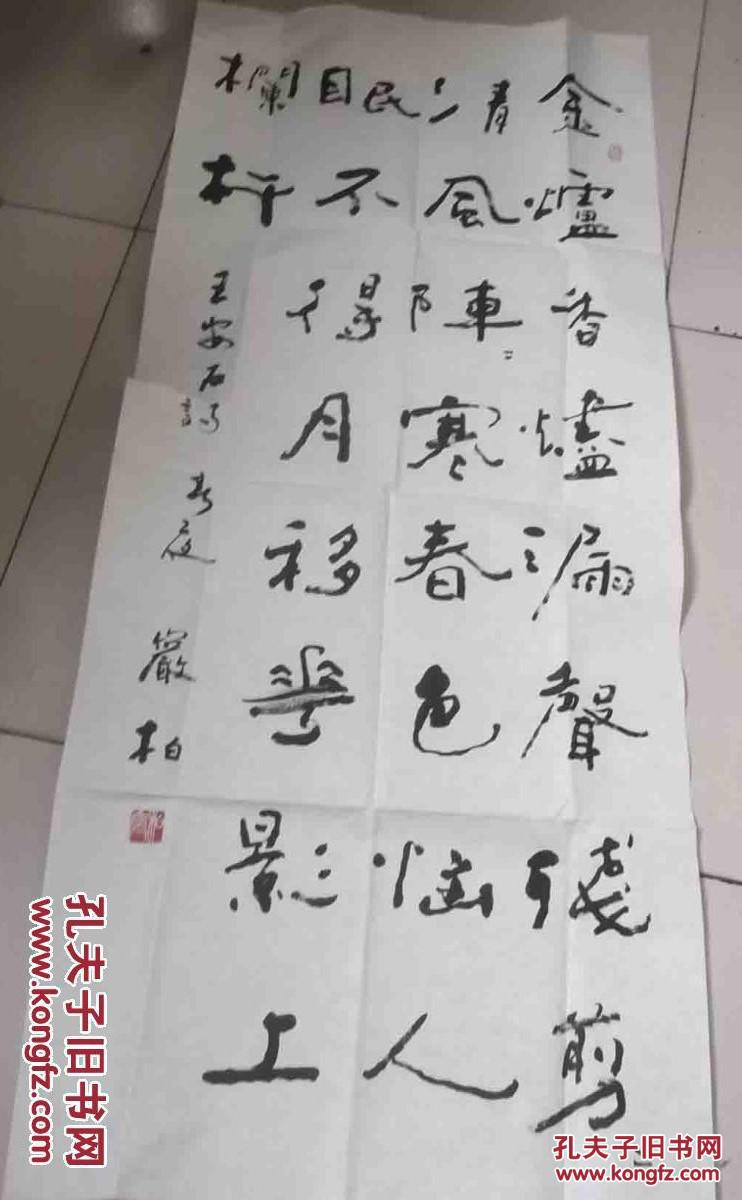 金爐香燼漏聲殘剪〻
清風陣〻寒春色惱人
眠不得月移華影上
欄杆
王安石詩 春夜 嚴柏
孔夫子旧书网
www.kongfz.com
孔夫子旧书网
www.kongfz.com